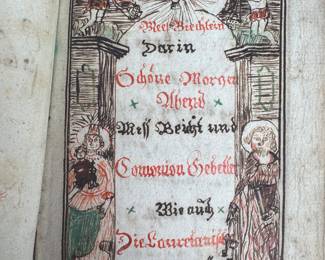 Mess Biechlein
Darin
Schöne Morgen
Abend
Mess Beicht und
Comonion Gebetter
Wie auch
Die Lauretanisch